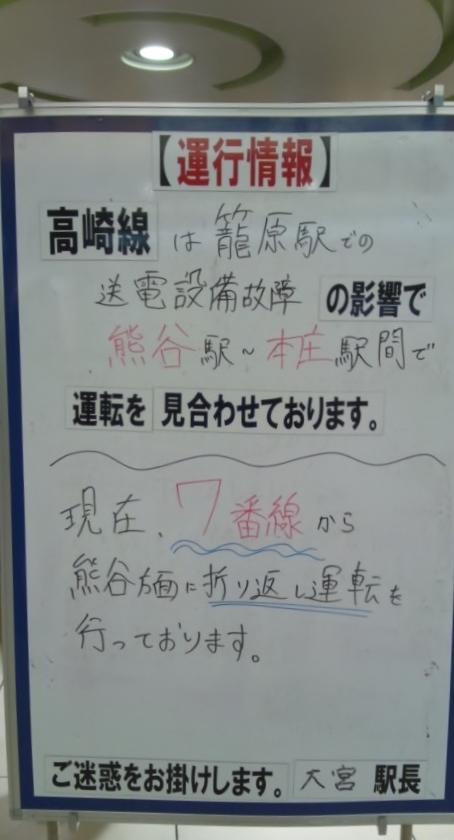 【運行情報】
高崎線は籠原駅での
送電設備故障の影響で
熊谷駅~本庄駅間で
運転を見合わせております。
現在、7番線から
熊谷方面に折り返し運転を
行っております。
ご迷惑をお掛けします。大宮駅長